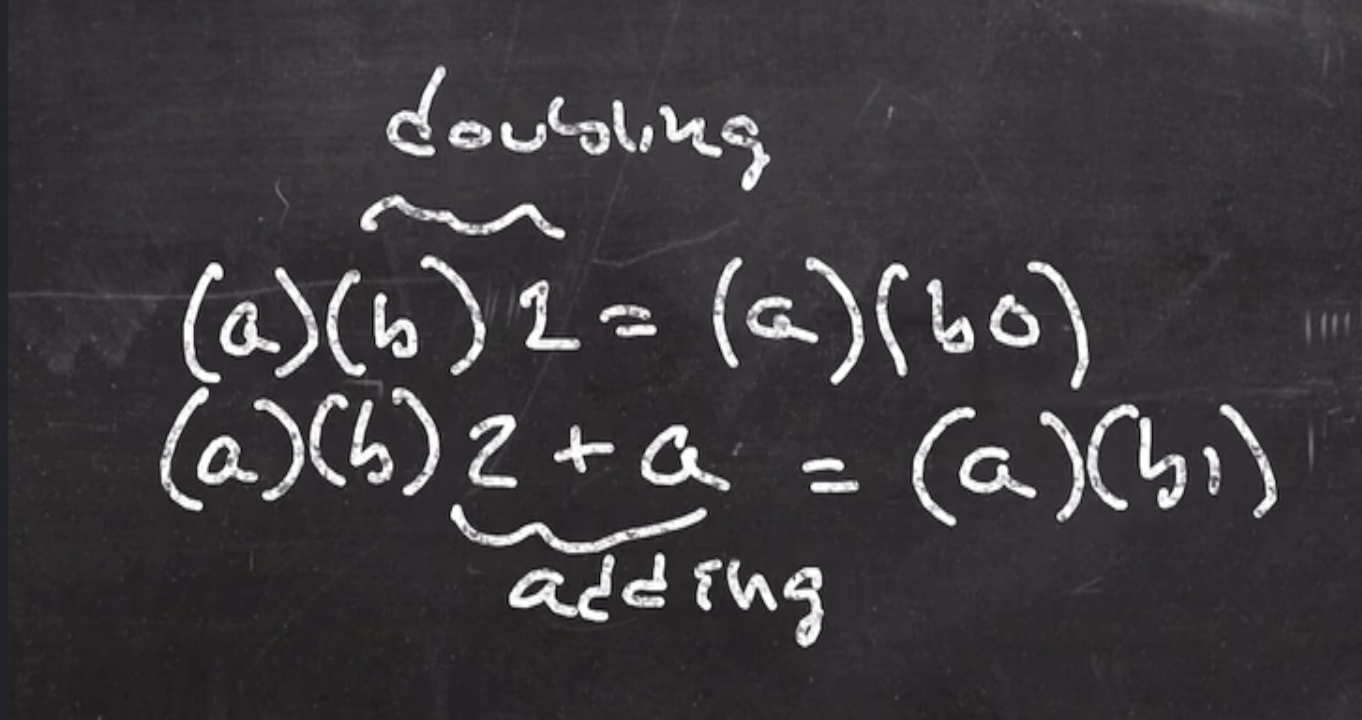 doubling
(a)(b)2 = (a)(b0)
(a)(b)2 + a = (a)(b1)
adding